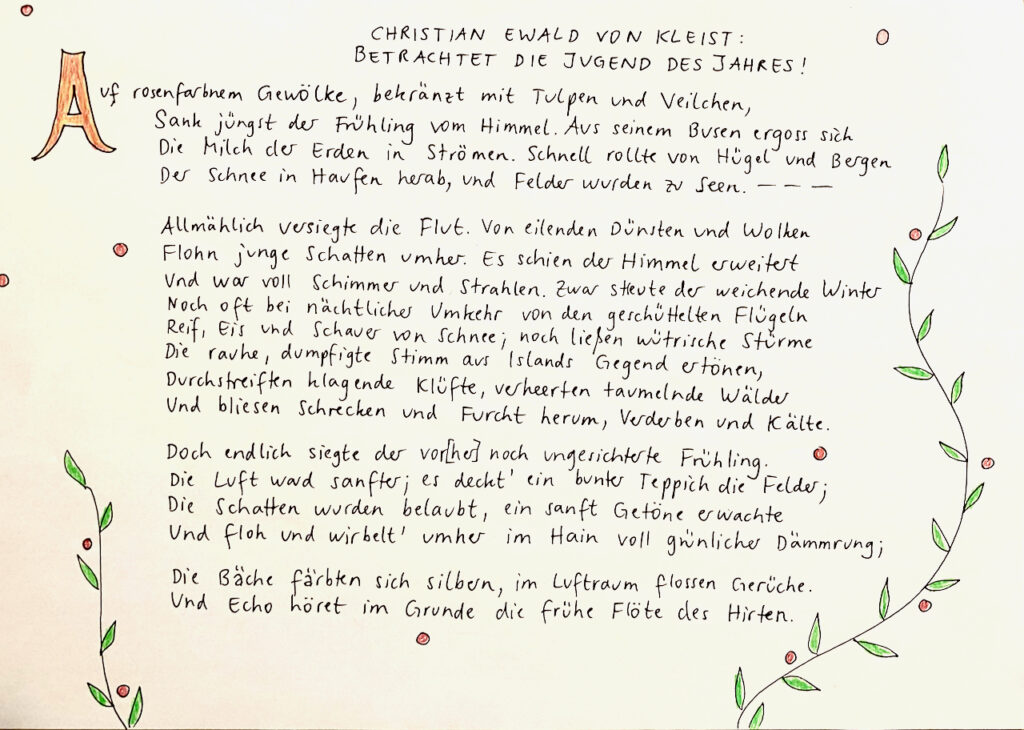 CHRISTIAN EWALD VON KLEIST:
BETRACHTET DIE JUGEND DES JAHRES!
Auf rosenfarbnem Gewölke, bekränzt mit Tulpen und Veilchen,
Sank jüngst der Frühling vom Himmel. Aus seinem Busen ergoss sich
Die Milch der Erden in Strömen. Schnell rollte von Hügel und Bergen
Der Schnee in Haufen herab, und Felder wurden zu Seen. – – –
Allmählich versiegte die Flut. Von eilenden Dünsten und Wolken
Flohn junge Schatten umher. Es schien der Himmel erweitert
Und war voll Schimmer und Strahlen. Zwar streute der weichende Winter
Noch oft bei nächtlicher Umkehr von den geschüttelten Flügeln
Reif, Eis und Schauer von Schnee; noch ließen wütrische Stürme
Die rauhe, dumpfigte Stimm aus Islands Gegend ertönen,
Durchstreiften klagende Klüfte, verheerten taumelnde Wälder
Und bliesen Schrecken und Furcht herum, Verderben und Kälte.
Doch endlich siegte der vor[her] noch ungesicherte Frühling.
Die Luft ward sanfter; es deckt' ein bunter Teppich die Felder;
Die Schatten wurden belaubt, ein sanft Getöne erwachte
Und floh und wirbelt' umher im Hain voll grünlicher Dämmrung;
Die Bäche färbten sich silbern, im Luftraum flossen Gerüche.
Und Echo höret im Grunde die frühe Flöte des Hirten.